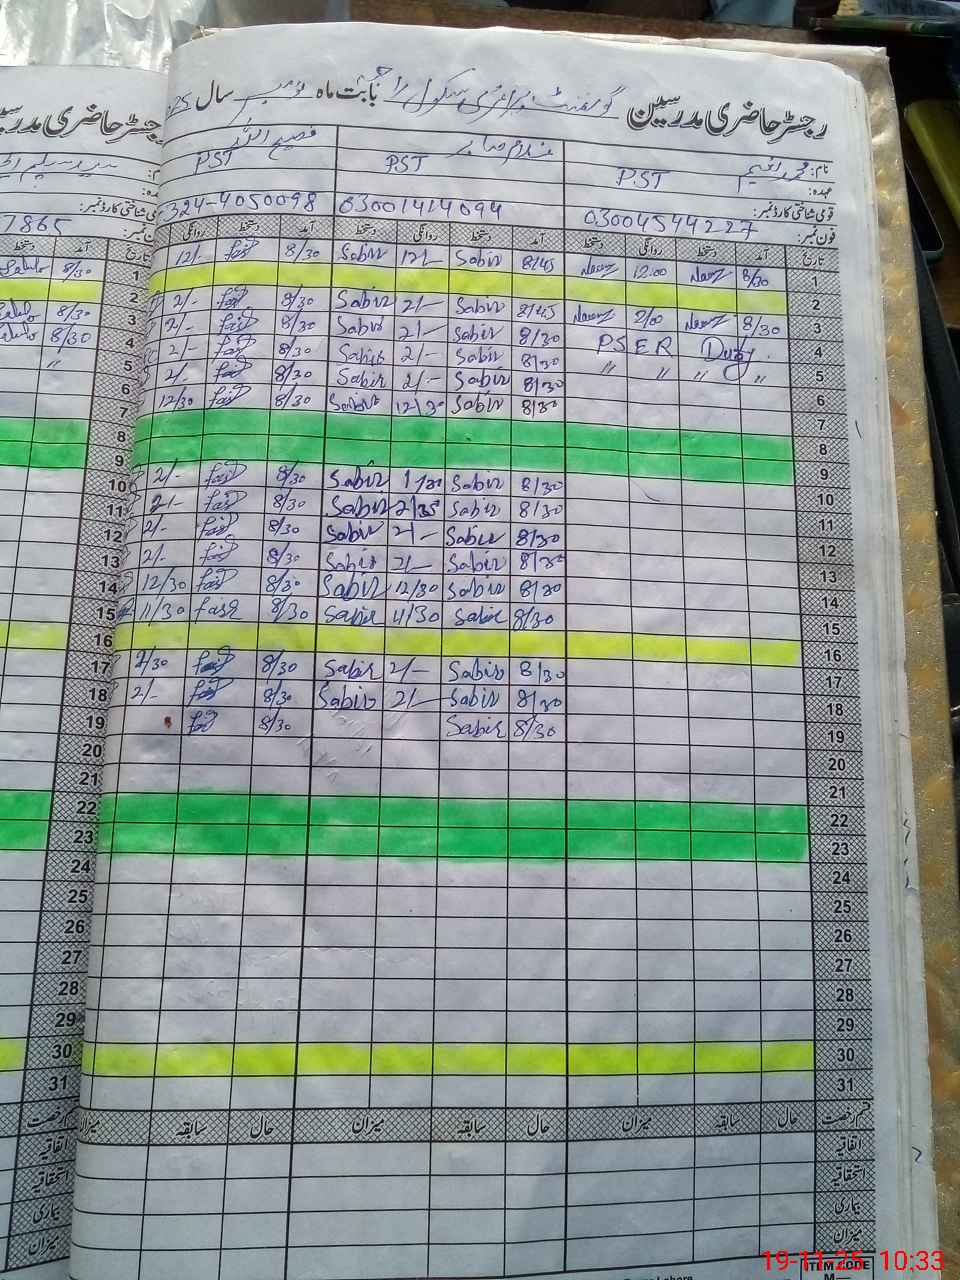 رجسٹر حاضری مدرسین گورنمنٹ پرائمری سکول بابت ماہ نومبر سال 25
نام: محمد نعیم غلام صابر فصیح اللہ
عہدہ: PST PST PST
قومی شناختی کارڈ نمبر:
فون نمبر: 03004544227 03001414094 324-4050098
تاریخ آمد دستخط روانگی دستخط آمد دستخط روانگی دستخط آمد دستخط روانگی
1 8/30 Naeem 12.00 Naeem 8/45 Sabir 12/- Sabir 8/30 fasi 12/-
2
3 8/30 Naeem 2/00 Naeem 8/45 Sabir 2/- Sabir 8/30 fasi 2/-
4 PSER Duty 8/30 Sabir 2/- Sabir 8/30 fasi 2/-
5 " " " " 8/30 Sabir 2/- Sabir 8/30 fasi 2/-
6 8/30 Sabir 2/- Sabir 8/30 fasi 2/-
7 8/30 Sabir 12/30 Sabir 8/30 fasi 12/30
8
9
10 8/30 Sabir 1/30 Sabir 8/30 fasi 2/-
11 8/30 Sabir Sabir 8/30 fasi 2/-
12 8/30 Sabir 2/- Sabir 8/30 fasi 2/-
13 8/30 Sabir 2/- Sabir 8/30 fasi 2/-
14 8/30 Sabir 12/30 Sabir 8/30 fasi 12/30
15 8/30 Sabir 11/30 Sabir 8/30 fasi 11/30
16
17 8/30 Sabir 2/- Sabir 8/30 fasi 2/30
18 8/30 Sabir 2/- Sabir 8/30 fasi 2/-
19 8/30 Sabir 8/30 fasi
20
21
22
23
24
25
26
27
28
29
30
31
قسم رخصت میزان حال سابقہ میزان حال سابقہ میزان
اتفاقیہ
استحقاقیہ
بیماری
میزان
رجسٹر حاضری مدرسین
7865
آمد دستخط
8/30
8/30
8/30
"
ITEM CODE
19-11-25 10:33